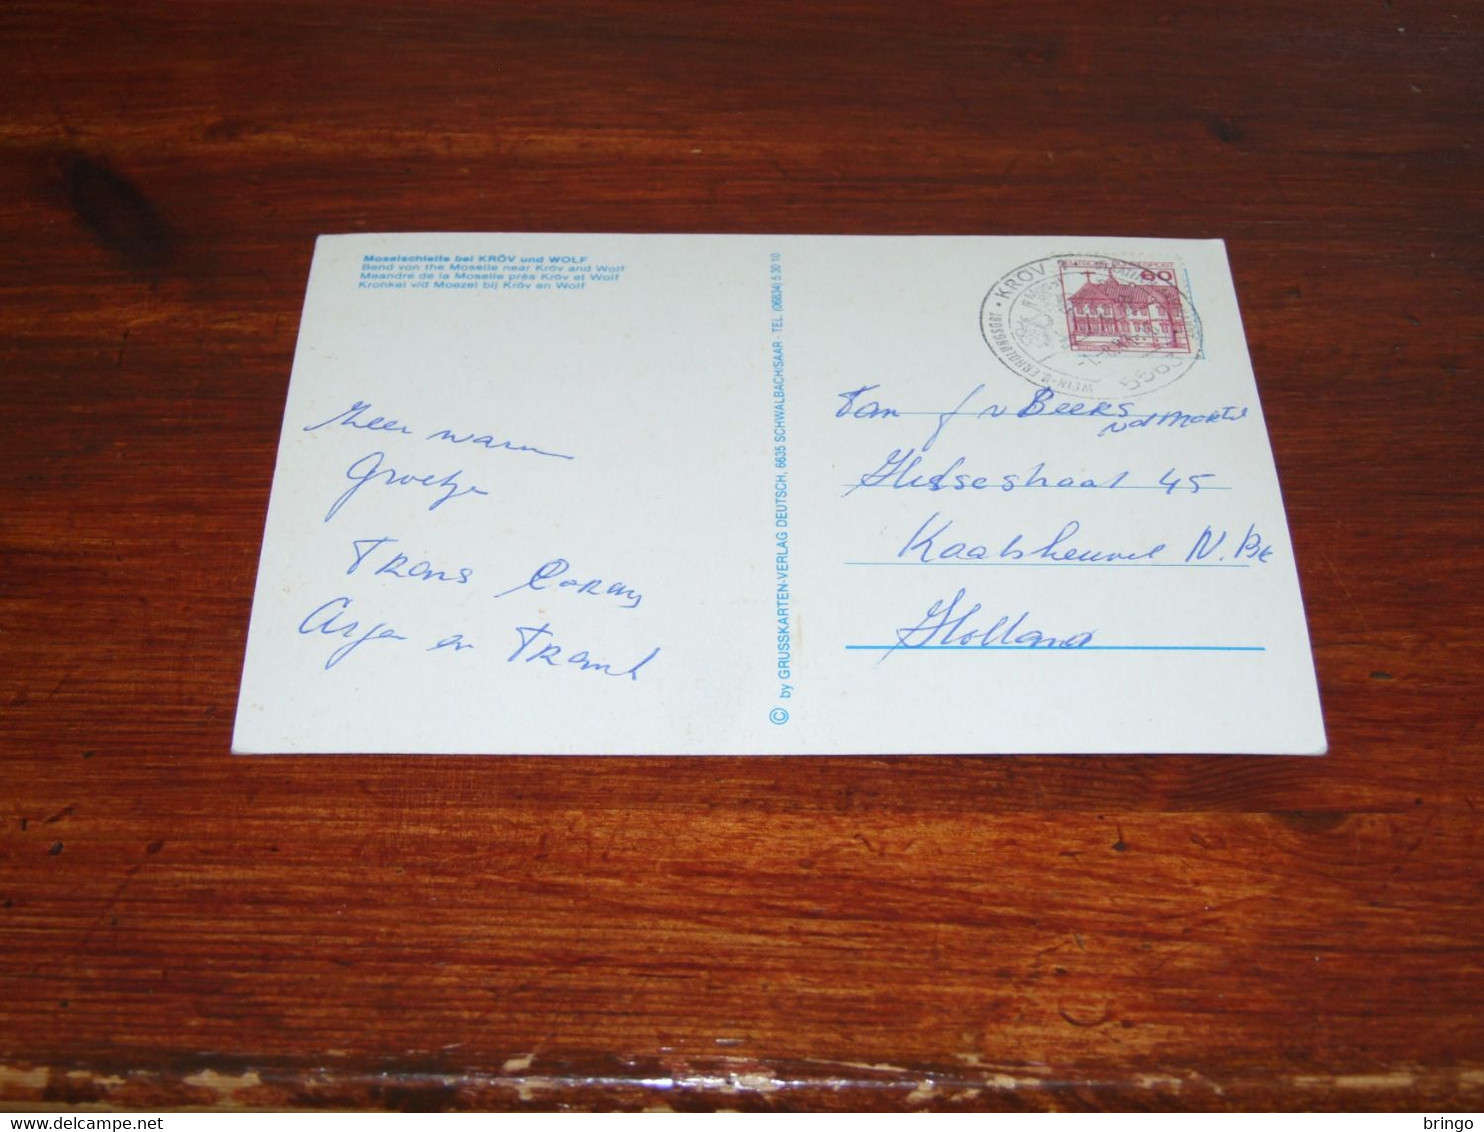 Moselschleife bei KRÖV und WOLF
Bend von the Moselle near Kröv and Wolf
Meandre de la Moselle près Kröv et Wolf
Kronkel v/d Moezel bij Kröv en Wolf
Zeer warm
Groetje
Trans
en
© by GRUSSKARTEN-VERLAG DEUTSCH, 6635 SCHWALBACH/SAAR - TEL. (06834) 5 30 10
KRÖV
WEIN- U. ERHOLUNGSORT
5563
60
Fam J v Beers
45
Kaatsheuvel N. Br
Holland
delcampe.net
bringo